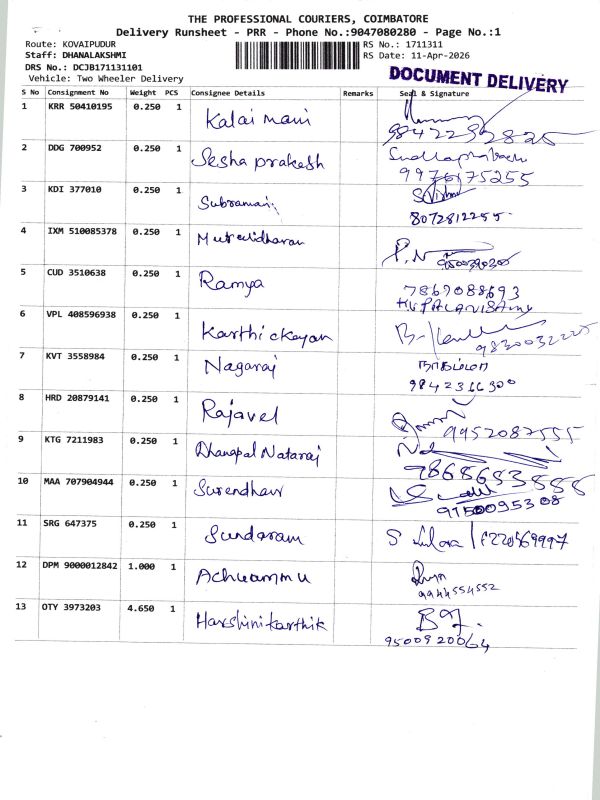 THE PROFESSIONAL COURIERS, COIMBATORE
Delivery Runsheet - PRR - Phone No.:9047080280 - Page No.:1
Route: KOVAIPUDUR
Staff: DHANALAKSHMI
DRS No.: DCJB171131101
Vehicle: Two Wheeler Delivery
RS No.: 1711311
RS Date: 11-Apr-2026
DOCUMENT DELIVERY
S No Consignment No Weight PCS Consignee Details Remarks Seal & Signature
1 KRR 50410195 0.250 1 Kalai mani
2 DDG 700952 0.250 1 Sesha prakash
9976175255
3 KDI 377010 0.250 1 Subramani
8072812255
4 IXM 510085378 0.250 1 P.N
5 CUD 3510638 0.250 1 Ramya 7867088693
6 VPL 408596938 0.250 1 Karthickeyan
9830032225
7 KVT 3558984 0.250 1 Nagaraj நாகம்மா
9842366300
8 HRD 20879141 0.250 1 Rajavel
9952087555
9 KTG 7211983 0.250 1 Dhanpal Nataraj
7868653888
10 MAA 707904944 0.250 1 Surendhar
9150095308
11 SRG 647375 0.250 1 Sundaram S
12 DPM 9000012842 1.000 1 Achuammu
9944554552
13 OTY 3973203 4.650 1 Harshini karthik
9500920064